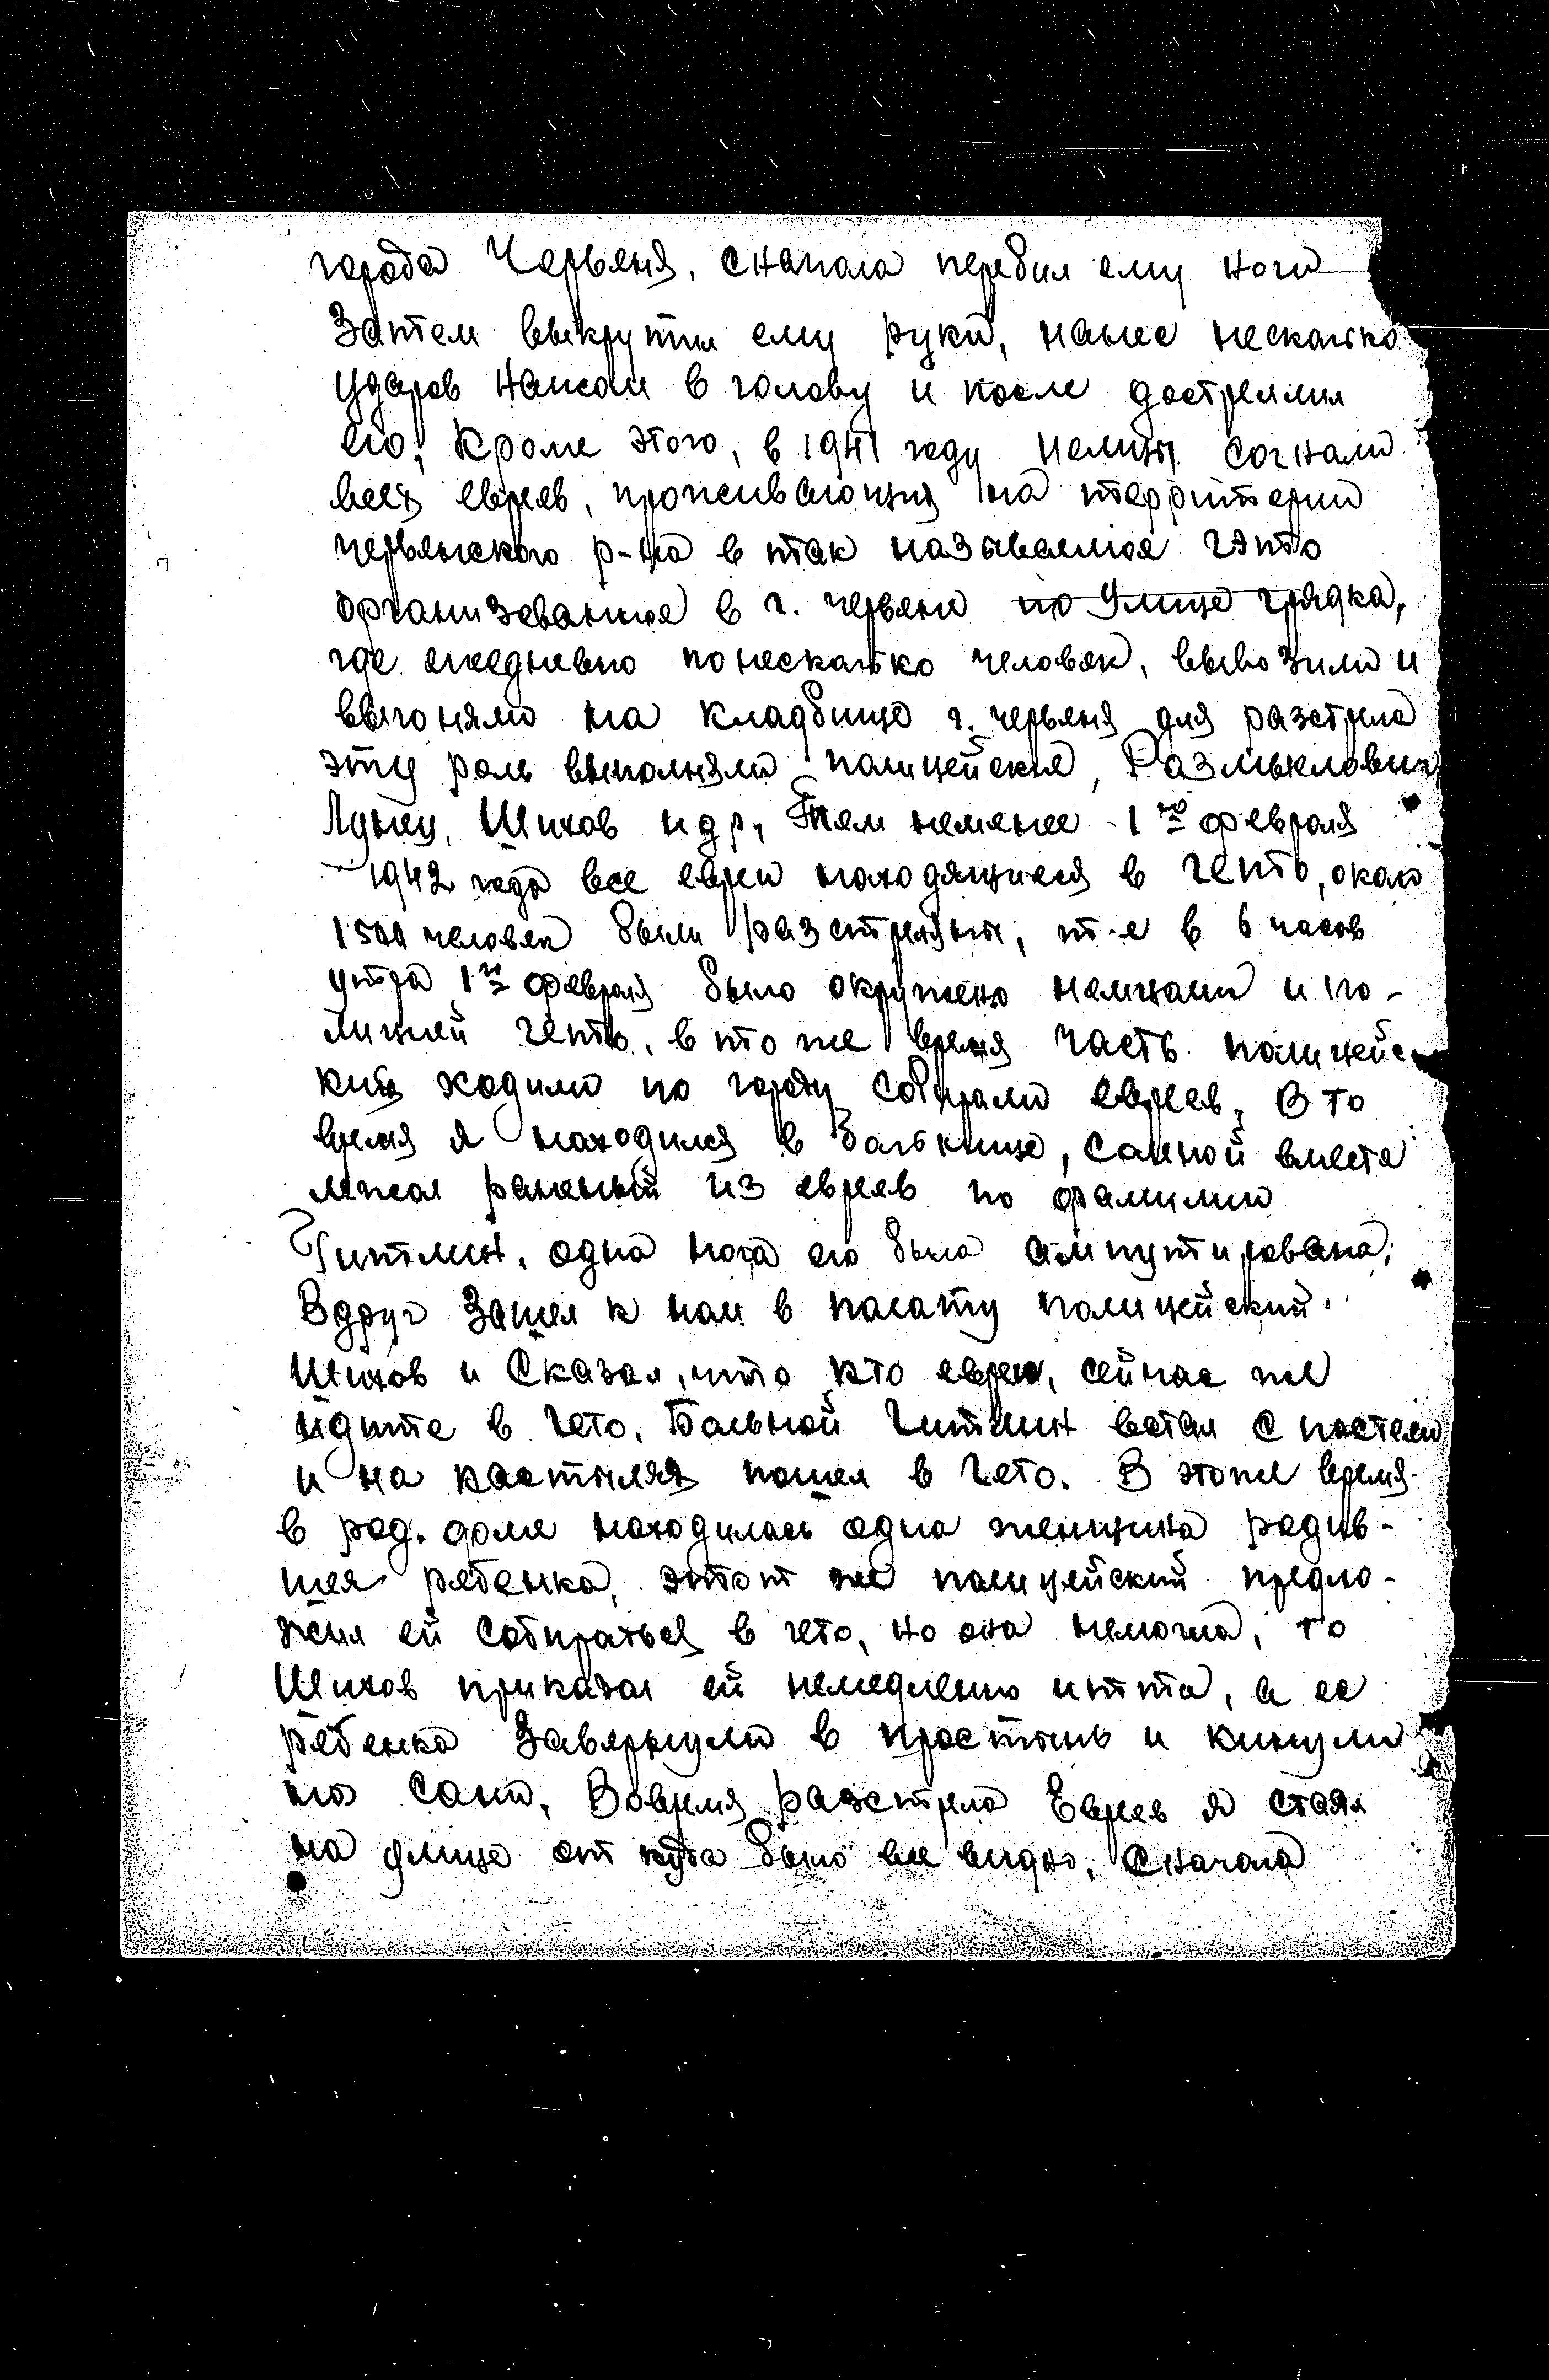 города Червеня, сначала перебил ему ноги
Затем выкрутил ему руки, нанес несколько
ударов ножом в голову и после дострелил
его, Кроме этого, в 1941 году немцы согнали
всех евреев, проживающих на территории
червенского р-на в так называемое гэтто
организованное в г. червене по Улице грядка,
где ежедневно понесколько человек, вывозили и
выгоняли на кладбище г. червеня для разстрела
эту роль выполняли полицейские, Размыслович
Лунец, Шихов и др, Тем неменее 1го февраля
1942 года все евреи находящиеся в гетто, около
1500 человек были разстреляны, т-е в 6 часов
утра 1го февраля было окружено немцами и по-
лицией гетто, в то же время часть полицейс-
ких ходили по городу собирали евреев, В то
время я находился в больнице, самной вместе
лежал раненый из евреев по фамилии
Гитлин, одна нога его была ампутирована,
Вдруг Зашел к нам в палату полицейский
Шихов и Сказал, что кто евреи, сейчас же
идите в гето. Больной Гитлин встал с постели
и на костылях пошел в гето. В этоже время
в род. доме находилась одна женщина родив-
шея ребенка, этот же полицейский предло-
жил ей собираться в гето, но она немогла, то
Шихов приказал ей немедленно итти, а ее
ребенка Завернули в простынь и кинули
на сани, Вовремя разстрела Евреев я стоял
на улице от куда было все видно, Сначала